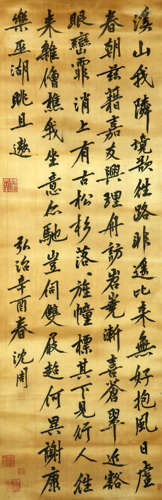 溪山我隣境欲徃路非遥比来好抱風日虚
春朝茲藉嘉友興理舟訪岩嶤漸喜蒼翠近豁
眼巒霏消上有古松杉落落旌幢標其下見行人徃
来雜僧樵我坐意亦馳豈伺雙屐超何異謝康
樂巫湖眺且遨
弘治辛酉春沈周